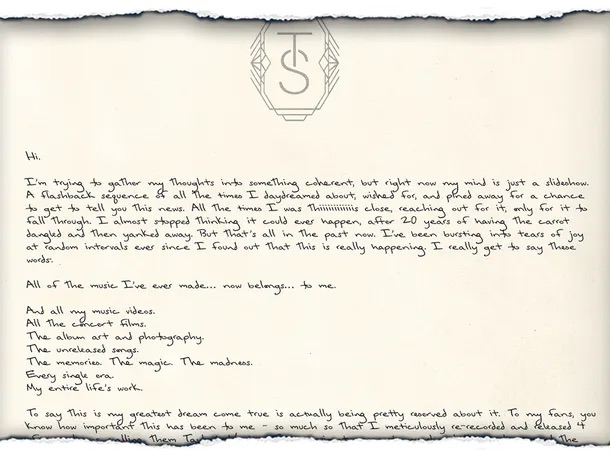 TS
Hi.
I'm trying to gather my thoughts into something coherent, but right now my mind is just a slideshow.
A flashback sequence of all the times I daydreamed about, wished for, and pined away for a chance
to get to tell you this news. All the times I was thiiiiiiiiiiiiis close, reaching out for it, only for it to
fall through. I almost stopped thinking it could ever happen, after 20 years of having the carrot
dangled and then yanked away. But that's all in the past now. I've been bursting into tears of joy
at random intervals ever since I found out that this is really happening. I really get to say these
words:
All of the music I've ever made... now belongs... to me.
And all my music videos.
All the concert films.
The album art and photography.
The unreleased songs.
The memories. The magic. The madness.
Every single era.
My entire life's work.
To say this is my greatest dream come true is actually being pretty reserved about it. To my fans, you
know how important this has been to me - so much so that I meticulously re-recorded and released 4